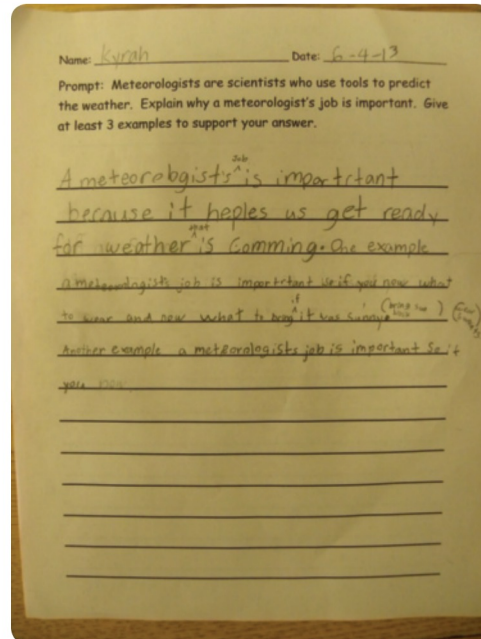 Name: Kyrah Date: 6-4-13
Prompt: Meteorologists are scientists who use tools to predict
the weather. Explain why a meteorologist's job is important. Give
at least 3 examples to support your answer.
job
A meteorologists is importrtant
because it heples us get ready
that
for weather is Comming. One example
a meteorologists job is important is if you new what
if
to wear and new what to bring it was sunnye (bring sun
Another example a meteorologists job is important So it
you now